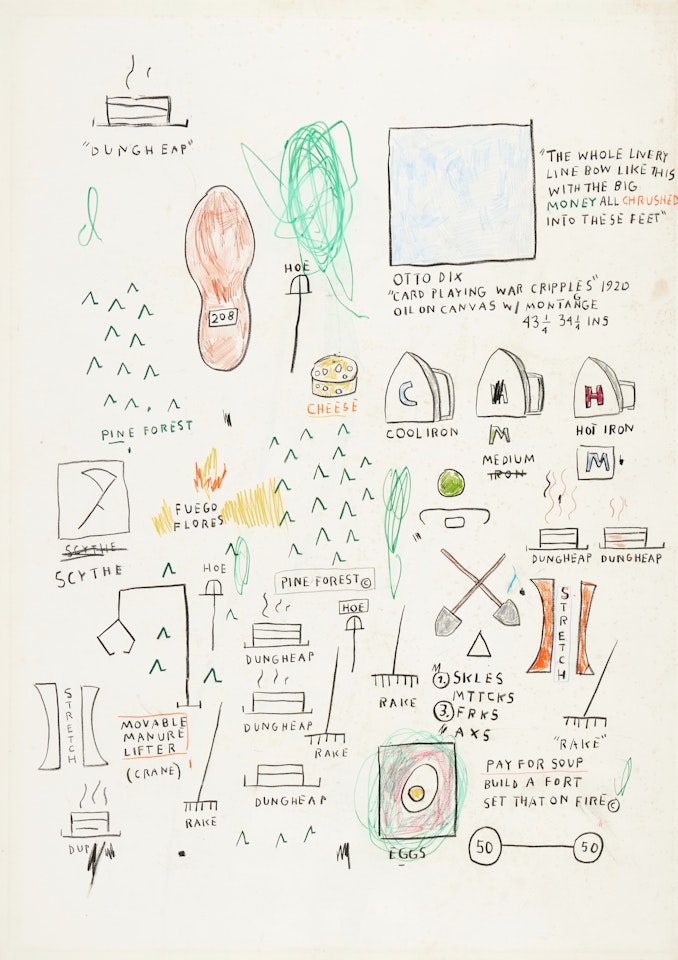 "DUNGHEAP"
"THE WHOLE LIVERY
LINE BOW LIKE THIS
WITH THE BIG
MONEY ALL CHRUSHED
INTO THESE FEET"
HOE
OTTO DIX
"CARD PLAYING WAR CRIPPLES" 1920
OIL ON CANVAS W/ MONTANGE
G
43 1/4 34 1/4 INS
208
CHEESE
PINE FOREST
C
M
H
COOL IRON
M
MEDIUM
IRON
HOT IRON
M
FUEGO
FLORES
SCYTHE
SCYTHE
HOE
PINE FOREST©
HOE
DUNGHEAP
DUNGHEAP
STRETCH
DUNGHEAP
M
1. SKLES
MTTCKS
3. FRKS
" AXS
RAKE
"RAKE"
STRETCH
MOVABLE
MANURE
LIFTER
(CRANE)
DUNGHEAP
RAKE
PAY FOR SOUP
BUILD A FORT
SET THAT ON FIRE©
DUNGHEAP
RAKE
EGGS
50
50